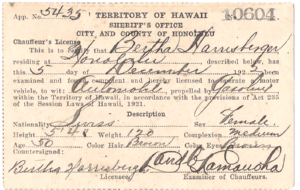 App. No. 5435 TERRITORY OF HAWAII 40604
SHERIFF'S OFFICE
CITY AND COUNTY OF HONOLULU
Chauffeur's License
This is to certify that Bertha Harrisberger
residing at Honolulu described below, has
this 5 day of December 192 been
examined and found competent and hereby licensed to operate a motor
vehicle, to wit: Automobile, propelled by Gasoline
within the Territory of Hawaii, in accordance with the provisions of Act 235
of the Session Laws of Hawaii, 1921.
Description
Nationality Swiss Female
Height 5'4½ Weight 120 Complexion Medium
Age 50 Color Hair Brown Color Eyes Brown
Countersigned:
Bertha Harrisberger
Licensee. Examiner of Chauffeurs.